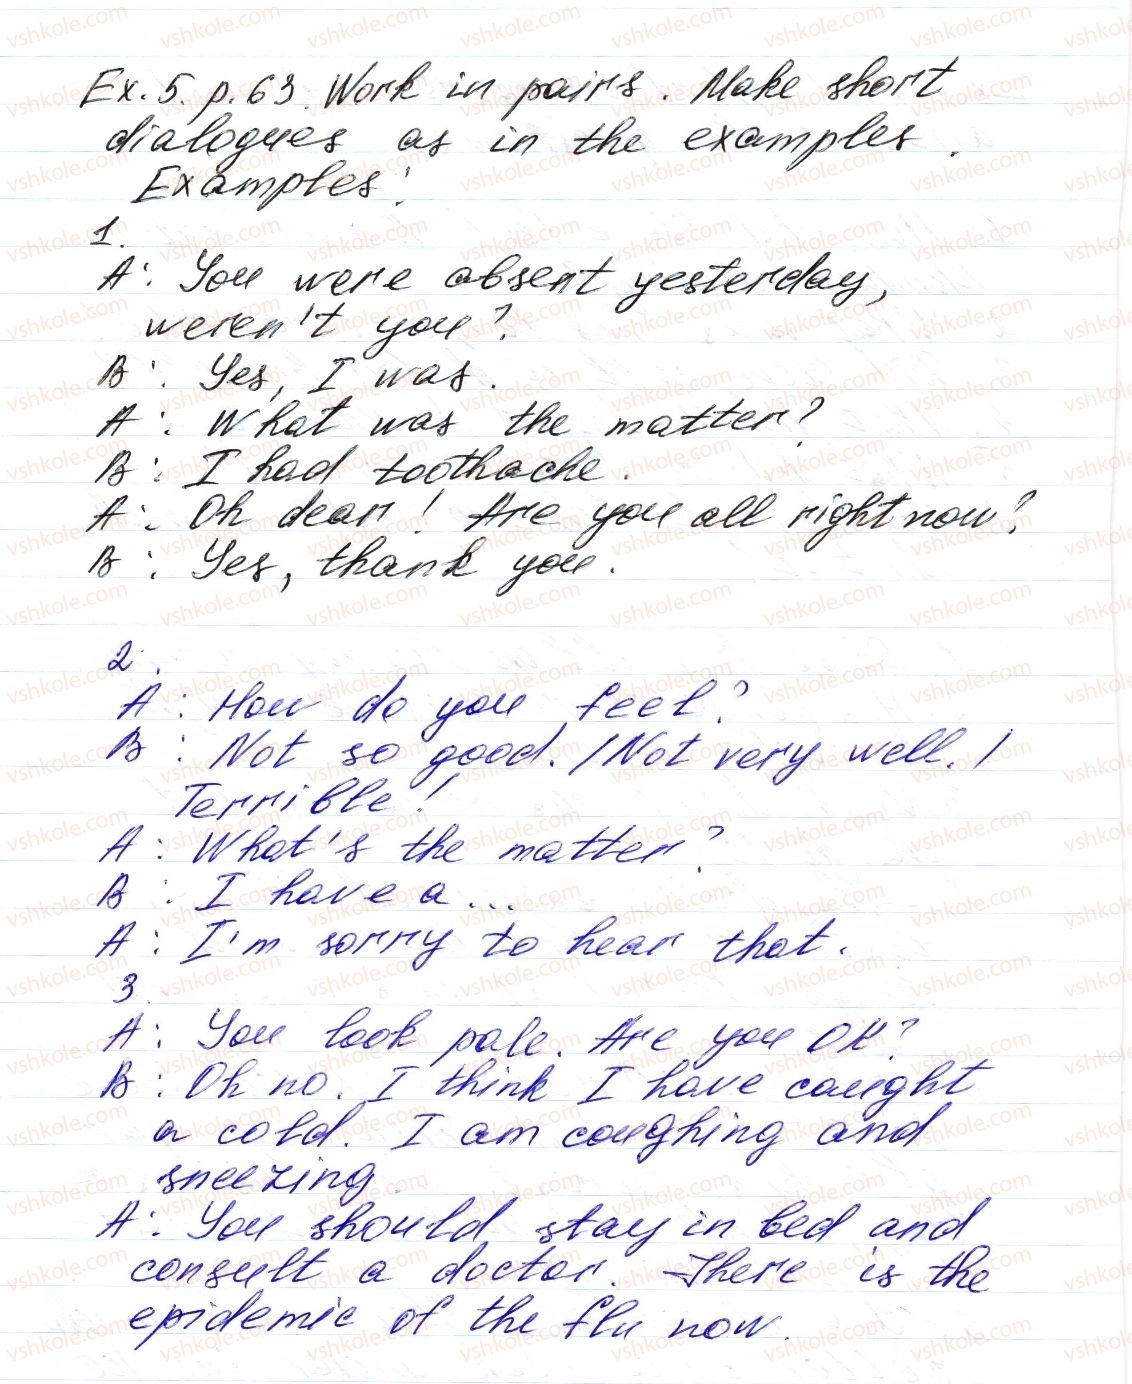 Ex. 5. p. 63. Work in pairs. Make short
dialogues as in the examples.
Examples:
1.
A: You were absent yesterday,
weren't you?
B: Yes, I was.
A: What was the matter?
B: I had toothache.
A: Oh dear! Are you all right now?
B: Yes, thank you.
2.
A: How do you feel?
B: Not so good. / Not very well. /
Terrible!
A: What's the matter?
B: I have a ...
A: I'm sorry to hear that.
3.
A: You look pale. Are you OK?
B: Oh no. I think I have caught
a cold. I am coughing and
sneezing.
A: You should stay in bed and
consult a doctor. There is the
epidemic of the flu now.
vshkole.com